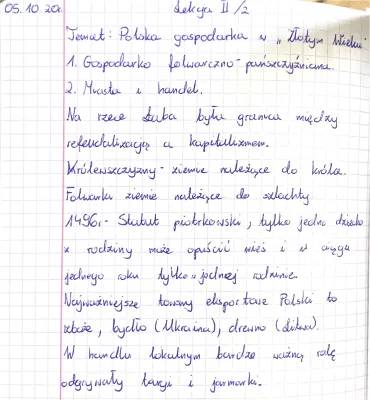 05.10.20r. Lekcja II/2
Temat: Polska gospodarka w „Złotym Wieku"
1. Gospodarka folwarczno-pańszczyźniana.
2. Miasta i handel.
Na rzece Łaba była granica między
refeudalizacją a kapitalizmem.
Królewszczyzny - ziemie należące do króla.
Folwarki ziemie należące do szlachty
1496r - Statut piotrkowski, tylko jedno dziecko
z rodziny może opuścić wieś i w ciągu
jednego roku tylko jednej rodzinie.
Najważniejsze towary eksportowe Polski to
zboże, bydło (Ukraina), drewno (Litwa).
W handlu lokalnym bardzo ważną rolę
odgrywały targi i jarmarki.